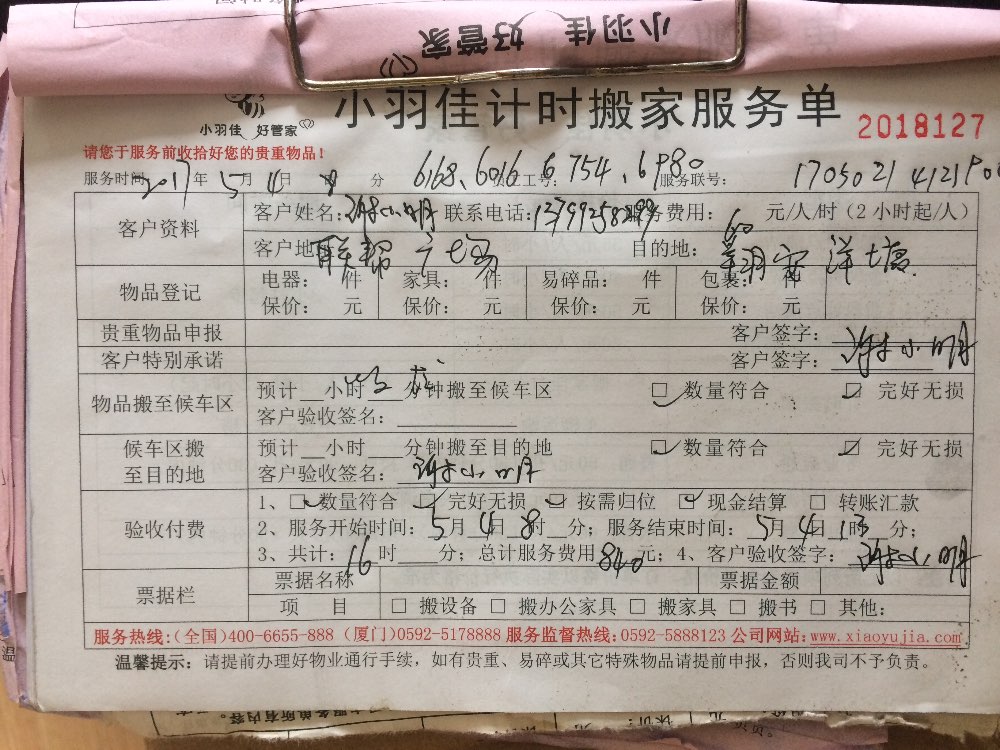 小羽佳 好管家
小羽佳 好管家
小羽佳计时搬家服务单
2018127
请您于服务前收拾好您的贵重物品!
服务时间 2017年5月4日 分 6168、6016 工号: 6754、6980 服务联号: 17050214121900
客户资料 客户姓名: 联系电话: 服务费用: 60 元/人/时（2小时起/人）
客户地址 目的地:
物品登记 电器: 件 家具: 件 易碎品: 件 包裹: 件
保价: 元 保价: 元 保价: 元 保价: 元
贵重物品申报 客户签字:
客户特别承诺 客户签字: 小明
物品搬至候车区 预计__小时__分钟搬至候车区 ☑ 数量符合 ☑ 完好无损
客户验收签名:
候车区搬至目的地 预计__小时__分钟搬至目的地 ☑ 数量符合 ☑ 完好无损
客户验收签名: 小明
验收付费 1、☑ 数量符合 ☑ 完好无损 ☑ 按需归位 ☑ 现金结算 □ 转账汇款
2、服务开始时间: 5月4日8时__分; 服务结束时间: 5月4日13时 分;
3、共计: 16时__分; 总计服务费用840元; 4、客户验收签字: 小明
票据栏 票据名称 票据金额
项 目 □ 搬设备 □ 搬办公家具 □ 搬家具 □ 搬书 □ 其他:
服务热线:(全国)400-6655-888 (厦门)0592-5178888 服务监督热线:0592-5888123 公司网站:www.xiaoyujia.com
温馨提示: 请提前办理好物业通行手续，如有贵重、易碎或其它特殊物品请提前申报，否则我司不予负责。